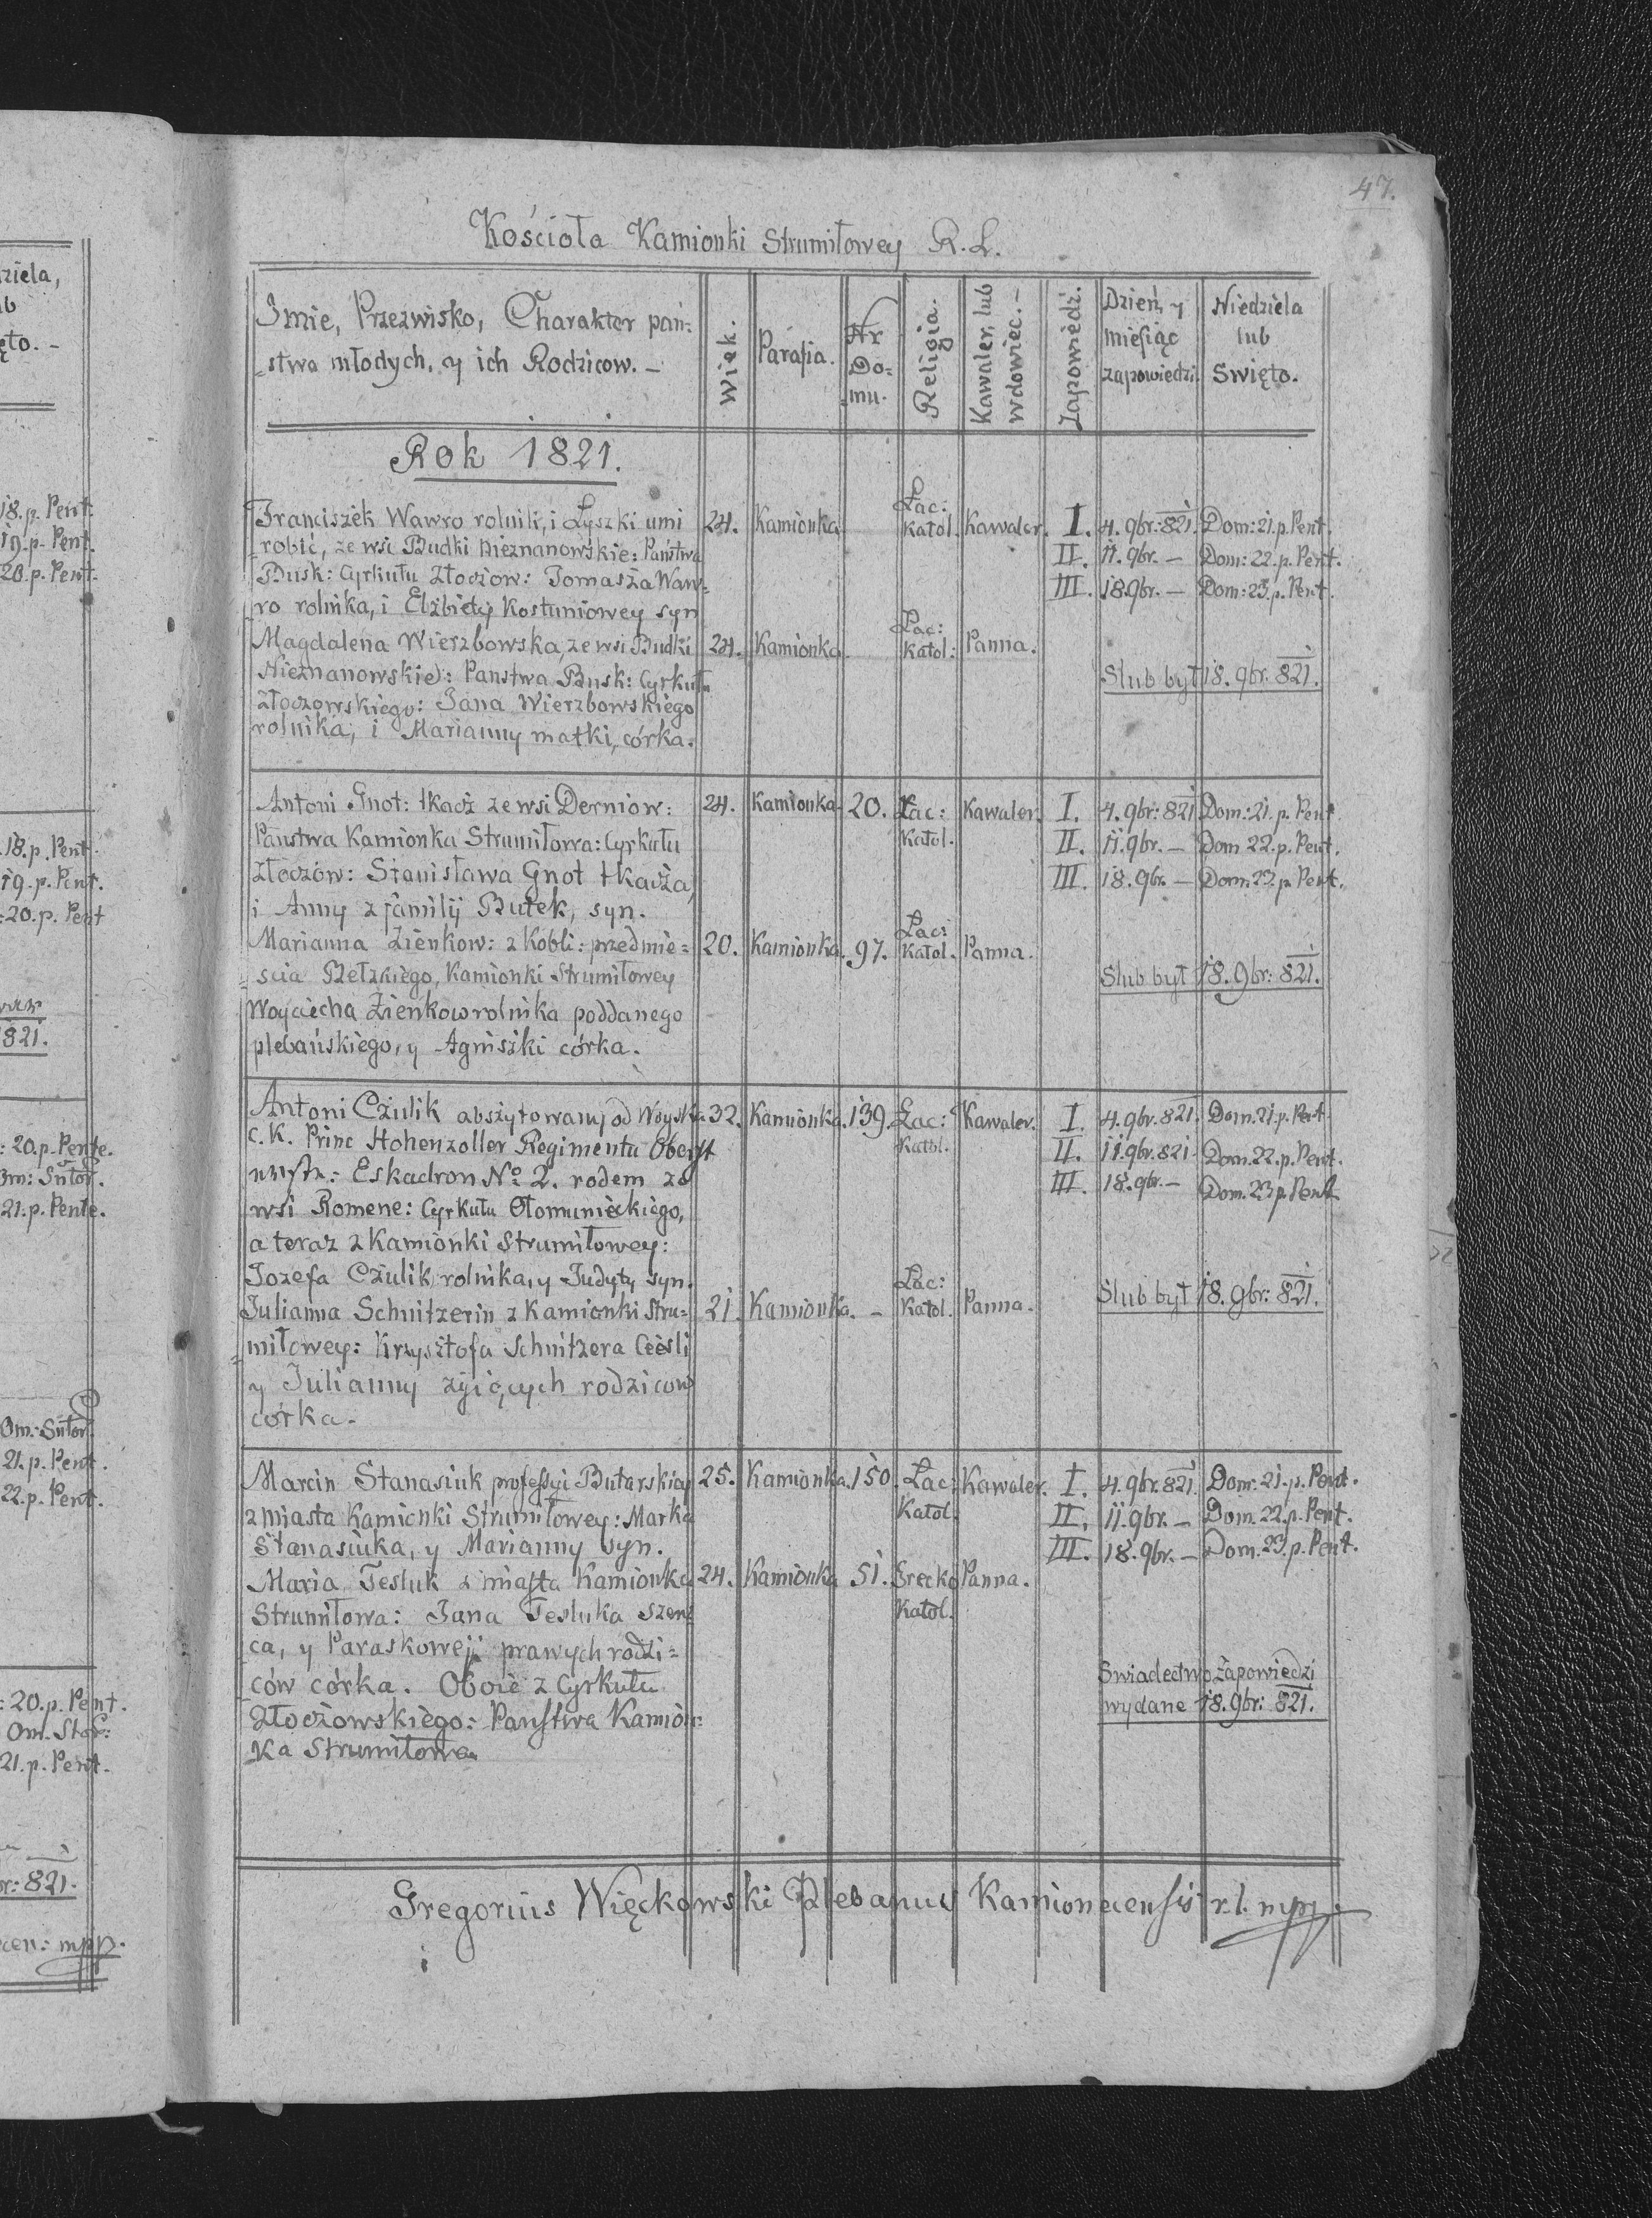 47.
Kościoła Kamionki Strumiłowey R. L.
Imie, Przezwisko, Charakter pań=
=stwa młodych, y ich Rodzicow. –
Wiek.
Parafia.
Nr Do=
=mu.
Religia.
Kawaler, lub
wdowiec. –
Zapowiedzi.
Dzień, y
miesiąc
zapowiedzi.
Niedziela
lub
Swięto.
Rok 1821.
Franciszek Wawro rolnik, i Łyszki umi 24. Kamionka Łac: Katol. Kawaler. I. 4. 9br: 821. Dom: 21. p. Pent.
robić, ze wsi Budki Nieznanowskie: Państwa II. 11. 9br. – Dom: 22. p. Pent.
Busk: Cyrkułu Złoczow: Tomasza Waw= III. 18. 9br. – Dom: 23. p. Pent.
ro rolnika, i Elżbiety Kostuniowey syn
Magdalena Wierzbowska, ze wsi Budki 24. Kamionka. Łac: Katol: Panna.
Nieznanowskie: Panstwa Busk: Cyrkułu Slub był 18. 9br. 821.
Złoczowskiego: Jana Wierzbowskiego
rolnika, i Marianny matki, córka.
Antoni Gnot: tkacz ze wsi Derniow: 24. Kamionka 20. Łac: Katol. Kawaler. I. 4. 9br: 821 Dom: 21. p. Pent
Panstwa Kamionka Strumiłowa: Cyrkułu II. 11. 9br. – Dom 22. p. Pent.
Złoczów: Stanisława Gnot tkacza, III. 18. 9br. – Dom. 23. p. Pent.
i Anny z familij Butek, syn.
Marianna Zienkow: z Kobli: przedmie= 20. Kamionka. 97. Łac: Katol. Panna.
=scia Bełzkiego, Kamionki Strumiłowey Slub był 18. 9br: 821.
Woyciecha Zienkow rolnika poddanego
plebańskiego, y Agniszki córka.
Antoni Czulik abszytowany od Woyska 32. Kamionka. 139. Łac: Katol. Kawaler. I. 4. 9br. 821. Dom. 21. p. Pent.
C. K. Princ Hohenzoller Regimentu Oberst II. 11. 9br. 821. Dom. 22. p. Pent.
Eskadron No 2. rodem ze III. 18. 9br. – Dom. 23 p. Pent
wsi Romene: Cyrkułu Ołomunieckiego,
a teraz z Kamionki Strumiłowey:
Jozefa Czulik, rolnika, y Judyty syn.
Julianna Schnitzerin z Kamionki Stru= 21. Kamionka. – Łac: Katol. Panna. Slub był 18. 9br: 821.
=miłowey: Krzysztofa Schnitzera Cieśli
y Julianny żyiących rodzicow
córka.
Marcin Stanasiuk professyi Butarskiey 25. Kamionka. 150. Łac: Katol. Kawaler. I. 4. 9br. 821. Dom: 21. p. Pent.
z miasta Kamionki Strumiłowey: Marka II. 11. 9br. – Dom. 22. p. Pent.
Stanasiuka, y Marianny syn. III. 18. 9br. – Dom. 23. p. Pent.
Maria Tesluk z miasta Kamionka 24. Kamionka 51. Grecko Katol. Panna.
Strumiłowa: Jana Tesluka szew=
ca, y Paraskoweji prawych rodzi=
ców córka. Oboie z Cyrkułu Swiadectwo zapowiedzi
Złoczowskiego: Panstwa Kamion= wydane 18. 9br: 821.
ka Strumiłowa
Gregorius Więckowski Plebanus Kamionecensis r. l. mpp.